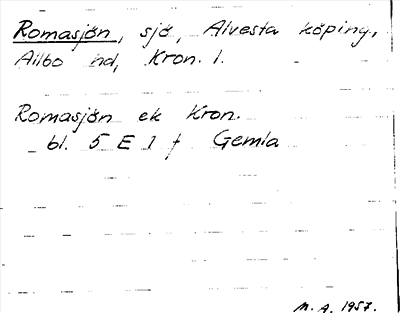 Romasjön, sjö, Alvesta köping,
Allbo hd, Kron. l.
Romasjön ek Kron.
bl. 5 E 1 f Gemla
M. A. 1957.